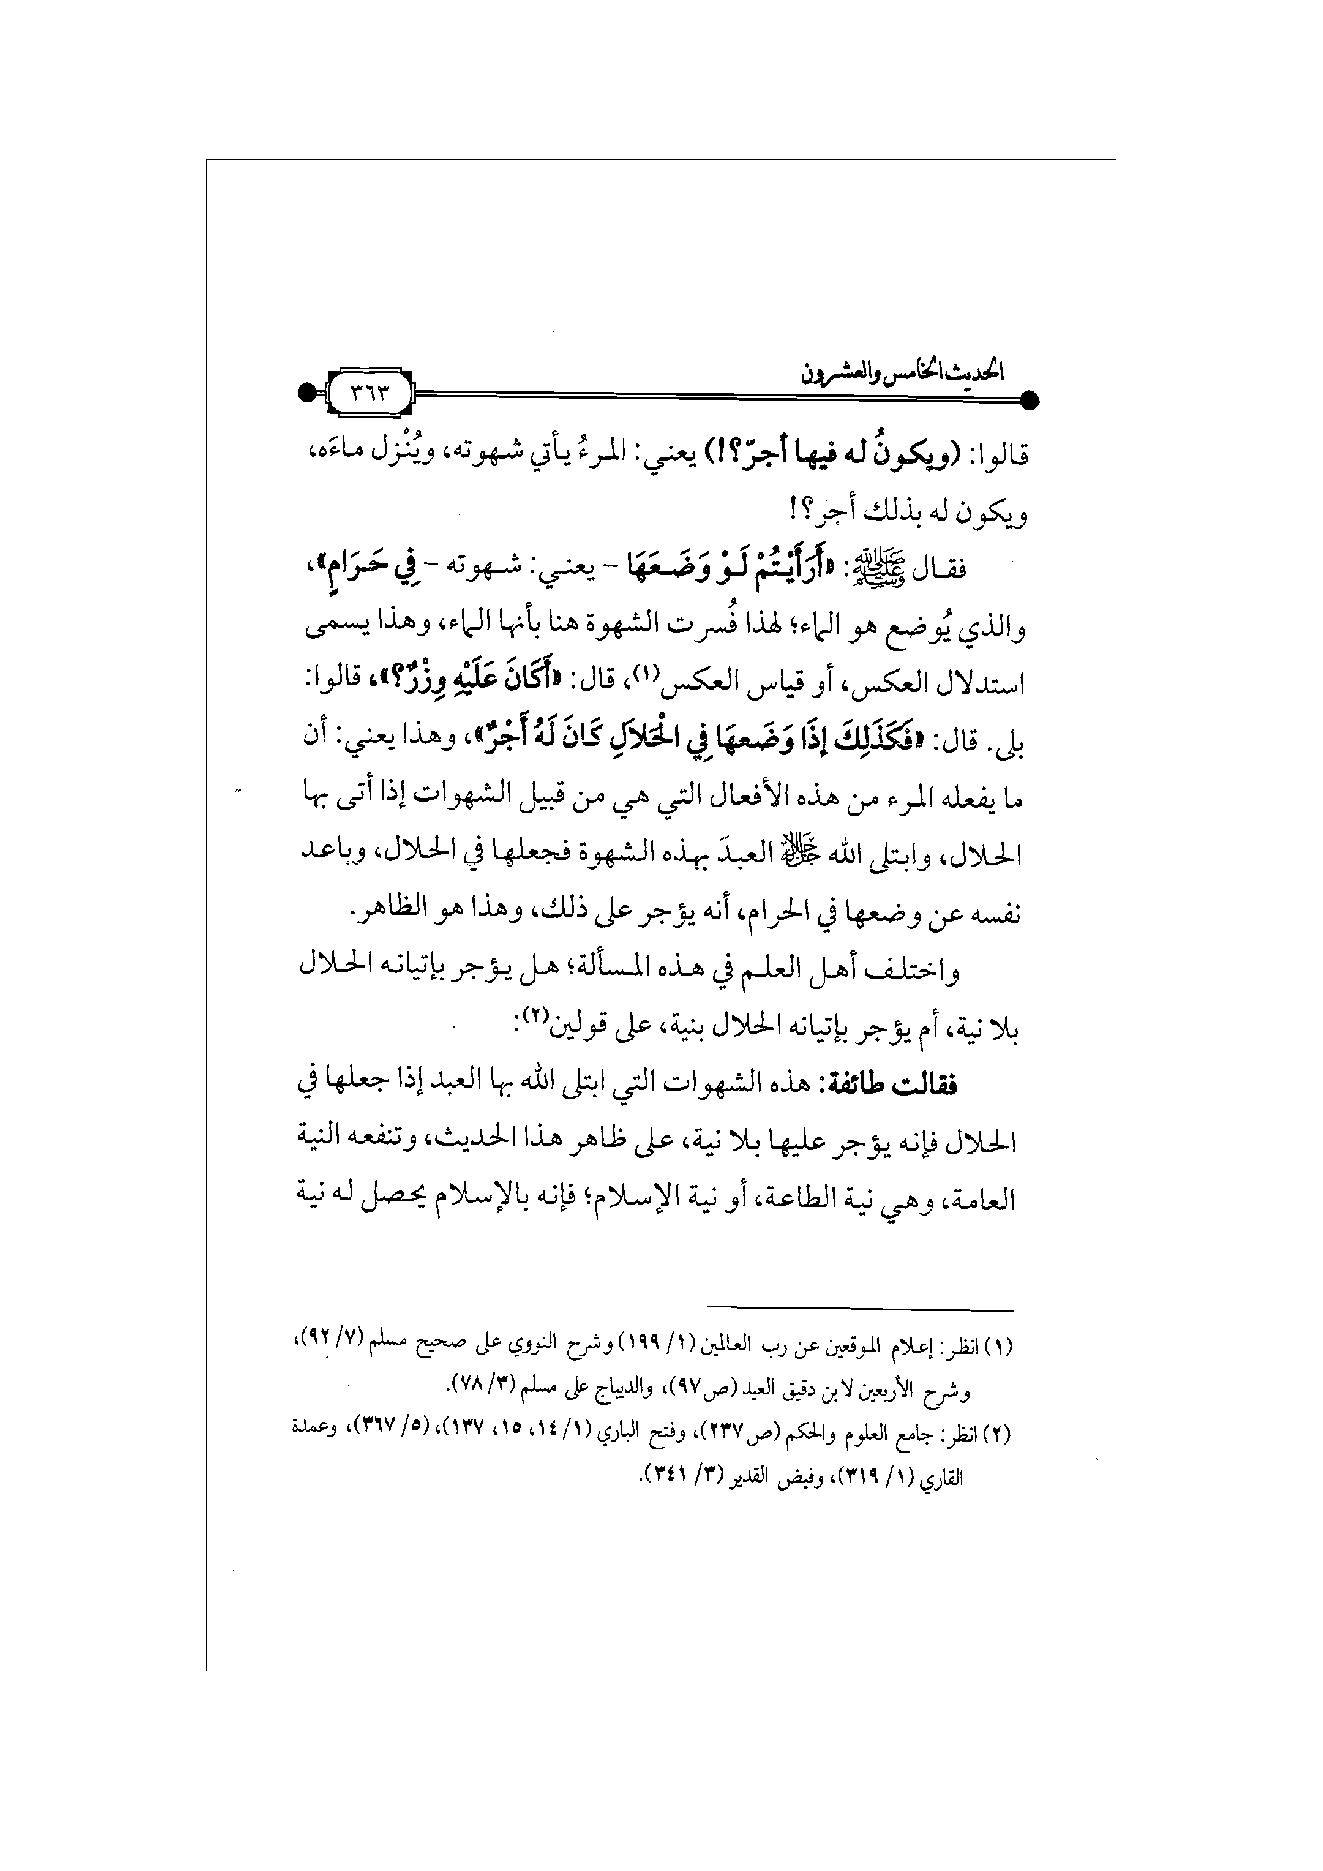 الحديث الخامس والعشرون
٣٦٣
قالوا: (ويكونُ له فيها أجرٌ؟!) يعني: المرءُ يأتي شهوته، ويُنْزل ماءَه،
ويكون له بذلك أجر؟!
فقال ﷺ: «أَرَأَيْتُمْ لَوْ وَضَعَهَا - يعني: شهوته - فِي حَرَامٍ»،
والذي يُوضع هو الماء؛ لهذا فُسرت الشهوة هنا بأنها الماء، وهذا يسمى
استدلال العكس، أو قياس العكس(١)، قال: «أَكَانَ عَلَيْهِ وِزْرٌ؟»، قالوا:
بلى. قال: «فَكَذَلِكَ إِذَا وَضَعهَا فِي الْحَلَالِ كَانَ لَهُ أَجْرٌ»، وهذا يعني: أن
ما يفعله المرء من هذه الأفعال التي هي من قبيل الشهوات إذا أتى بها
الحلال، وابتلى الله ﷻ العبدَ بهذه الشهوة فجعلها في الحلال، وباعد
نفسه عن وضعها في الحرام، أنه يؤجر على ذلك، وهذا هو الظاهر.
واختلف أهل العلم في هذه المسألة؛ هل يؤجر بإتيانه الحلال
بلا نية، أم يؤجر بإتيانه الحلال بنية، على قولين(٢):
فقالت طائفة: هذه الشهوات التي ابتلى الله بها العبد إذا جعلها في
الحلال فإنه يؤجر عليها بلا نية، على ظاهر هذا الحديث، وتنفعه النية
العامة، وهي نية الطاعة، أو نية الإسلام؛ فإنه بالإسلام يحصل له نية
(١) انظر: إعلام الموقعين عن رب العالمين (١/ ١٩٩) وشرح النووي على صحيح مسلم (٧/ ٩٢)،
وشرح الأربعين لابن دقيق العيد (ص٩٧)، والديباج على مسلم (٣/ ٧٨).
(٢) انظر: جامع العلوم والحكم (ص٢٣٧)، وفتح الباري (١/ ١٤، ١٥، ١٣٧)، (٥/ ٣٦٧)، وعمدة
القاري (١/ ٣١٩)، وفيض القدير (٣/ ٣٤١).